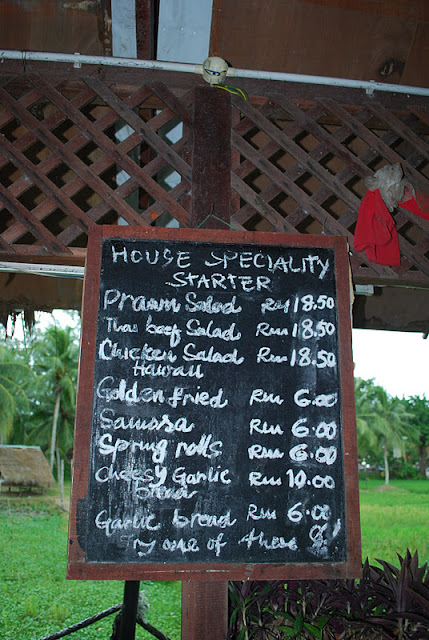 HOUSE SPECIALITY
STARTER
Prawn Salad RM 18.50
Thai beef Salad Rm 18.50
Chicken Salad Rm 18.50
Hawaii
Golden fried Rm 6.00
Samosa Rm 6.00
Spring rolls Rm 6.00
Cheesy Garlic Rm 10.00
bread
Garlic bread Rm 6.00
Try one of these